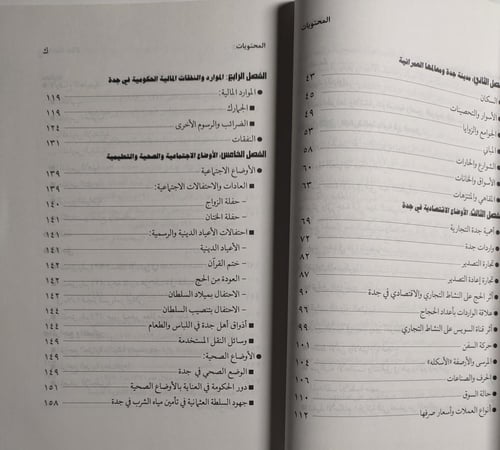 المحتويات
الفصل الثاني: مدينة جدة ومعالمها العمرانية ٤٣
السكان ٤٥
الأسوار والتحصينات ٤٩
الجوامع والزوايا ٥٣
المباني ٥٨
الشوارع والحارات ٦٠
الأسواق والخانات ٦٣
المقاهي والمتنزهات
الفصل الثالث: الأوضاع الاقتصادية في جدة
● أهمية جدة التجارية ٦٩
● واردات جدة ٧٢
● تجارة التصدير ٨٢
● تجارة إعادة التصدير ٨٧
● أثر الحج على النشاط التجاري والاقتصادي في جدة ٩٠
● علاقة الواردات بأعداد الحجاج ٩٦
● أثر قناة السويس على النشاط التجاري ٩٩
● حركة السفن ١٠١
● المرسى والأرصفة «الأسكله» ١٠٤
● الحرف والصناعات ١٠٦
● حالة السوق ١١٠
● أنواع العملات وأسعار صرفها ١١٢
المحتويات: ك
الفصل الرابع: الموارد والنفقات المالية الحكومية في جدة
● الموارد المالية: ١١٩
■ الجمارك ١١٩
■ الضرائب والرسوم الأخرى ١٢٤
● النفقات ١٣١
الفصل الخامس: الأوضاع الاجتماعية والصحية والتعليمية
● الأوضاع الاجتماعية ١٣٩
■ العادات والاحتفالات الاجتماعية: ١٣٩
– حفلة الزواج ١٤٠
– حفلة الختان ١٤١
■ احتفالات الأعياد الدينية والرسمية: ١٤١
– الأعياد الدينية ١٤١
– ختم القرآن ١٤٢
– العودة من الحج ١٤٢
– الاحتفال بميلاد السلطان ١٤٢
– الاحتفال بتنصيب السلطان ١٤٤
■ أذواق أهل جدة في اللباس والطعام ١٤٤
■ وسائل النقل المستخدمة ١٤٩
● الأوضاع الصحية: ١٤٩
■ الوضع الصحي في جدة ١٤٩
■ دور الحكومة في العناية بالأوضاع الصحية ١٥١
■ جهود السلطة العثمانية في تأمين مياه الشرب في جدة ١٥٨